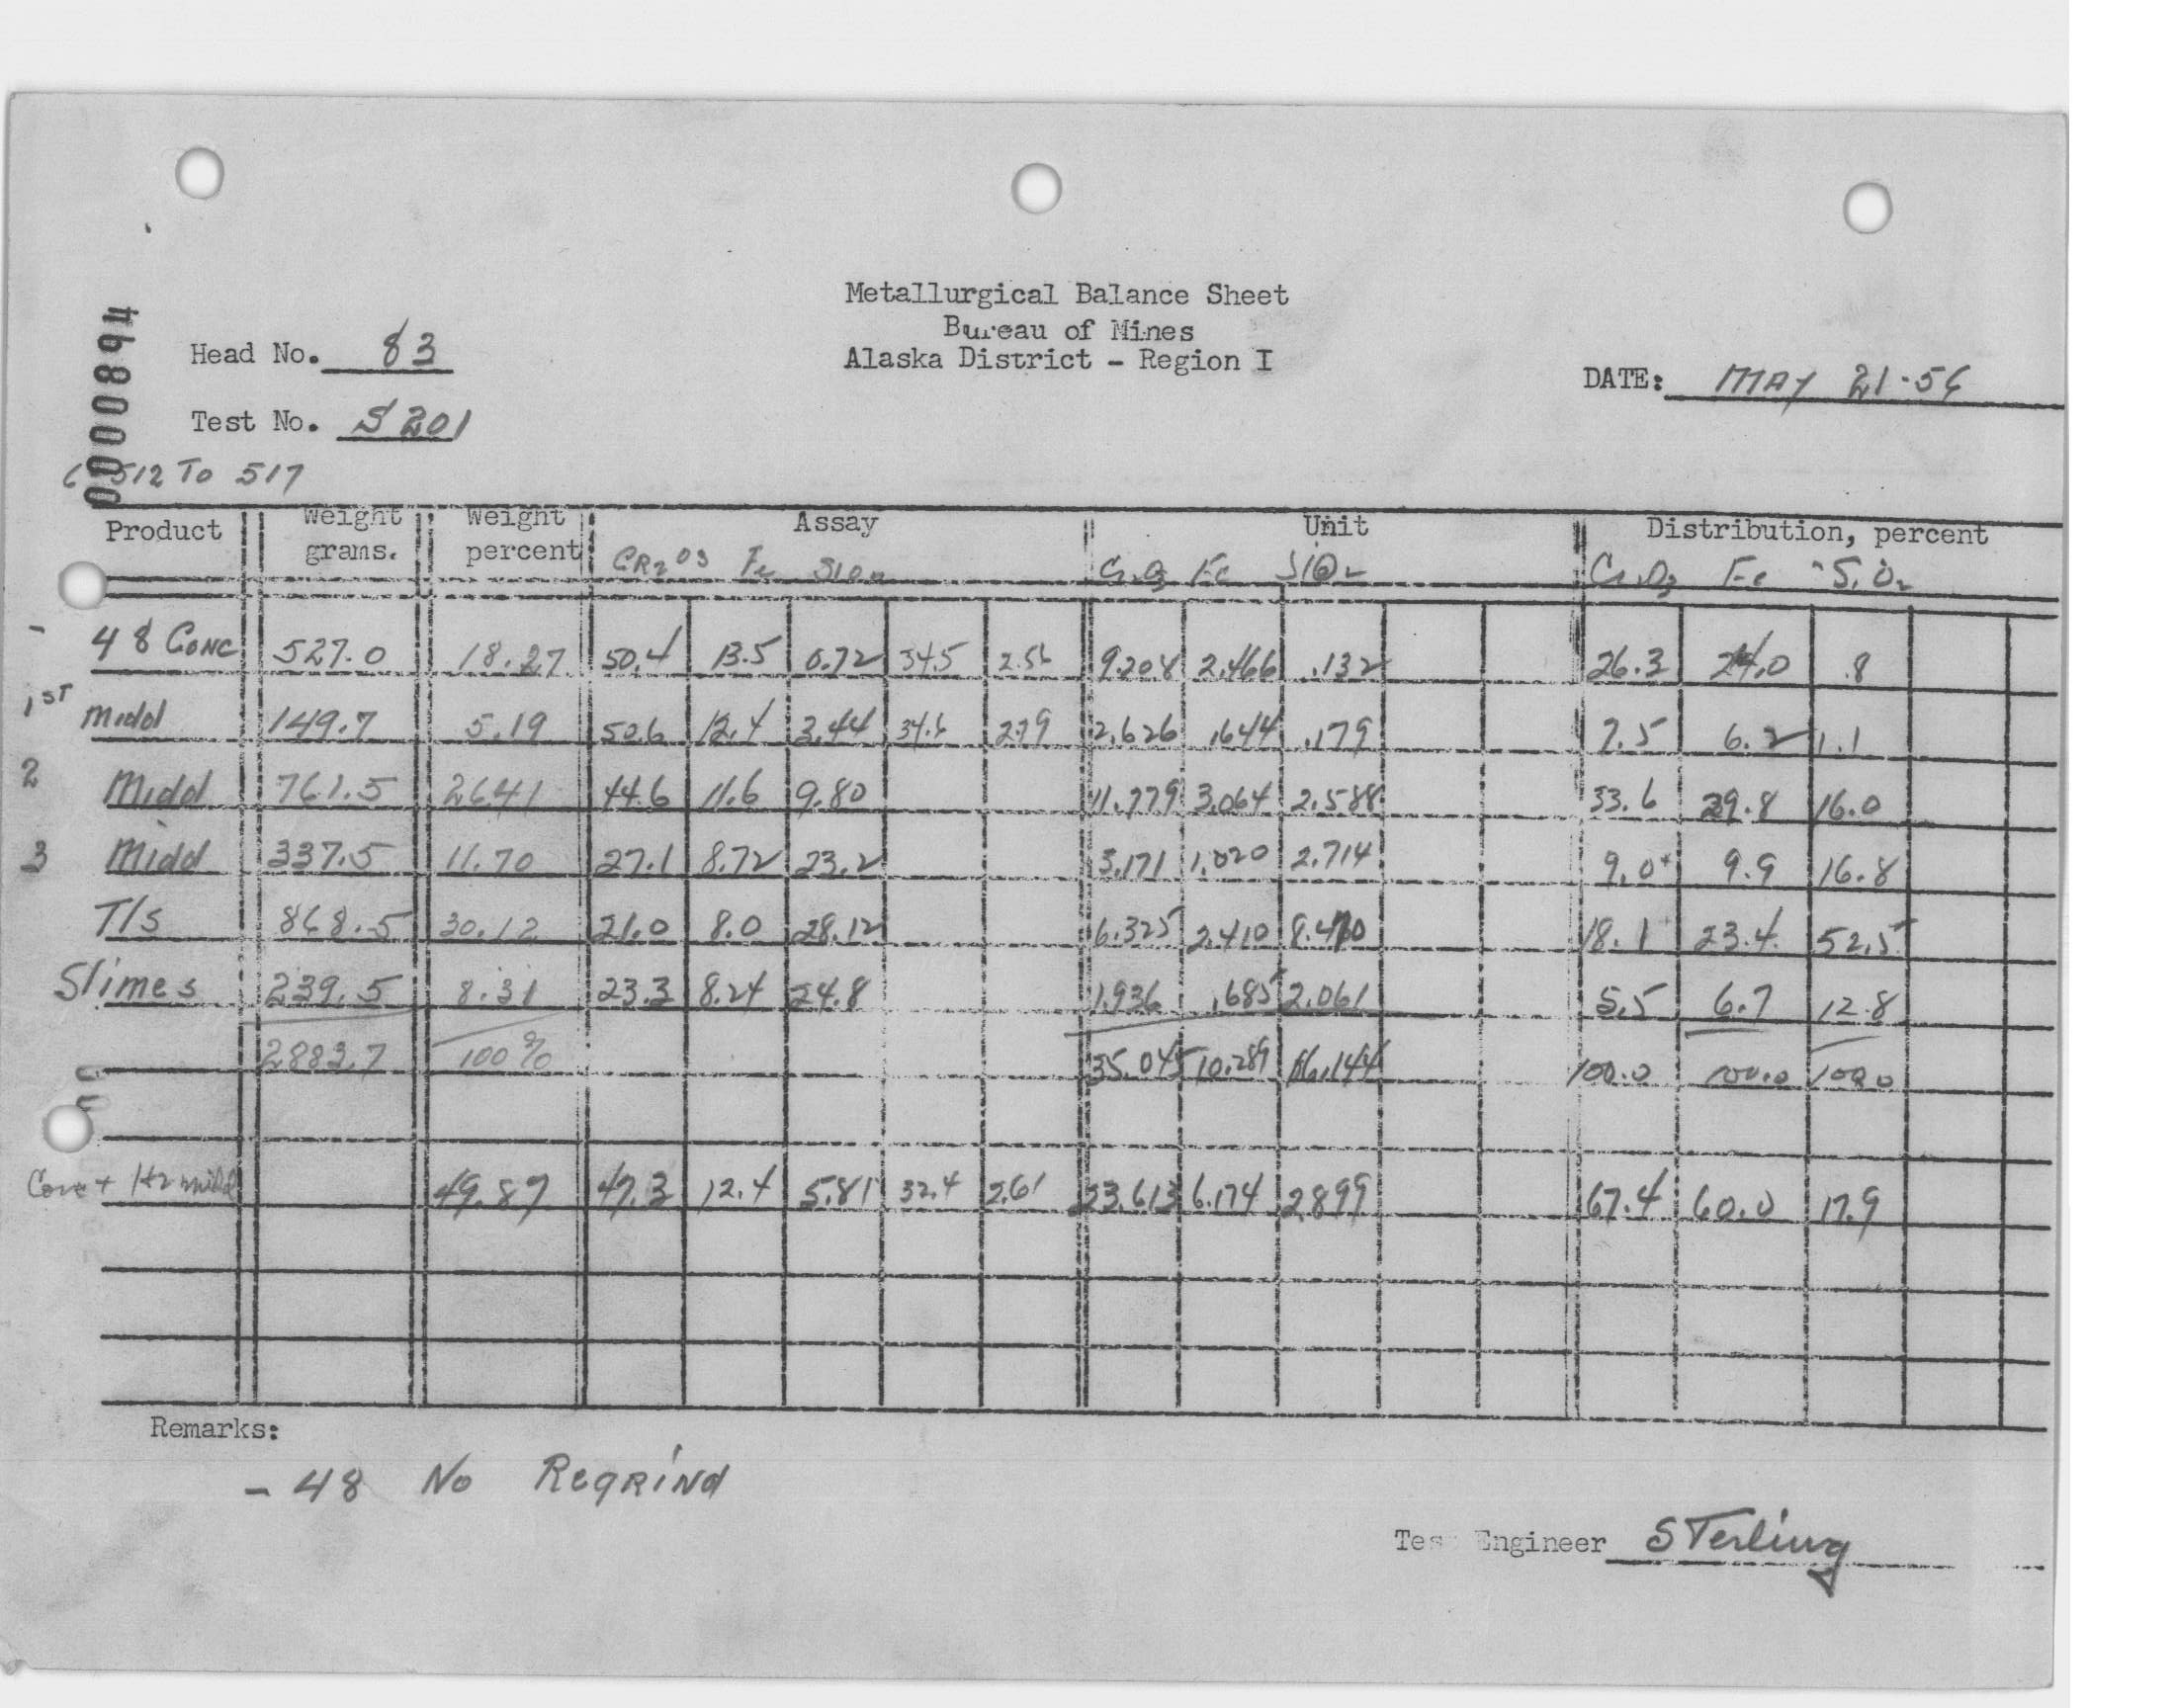 Metallurgical Balance Sheet
Bureau of Mines
Alaska District - Region I
0000894
Head No. 83
DATE: MAY 21-56
Test No. S201
512 To 517
Product Weight grams. Weight percent Assay Unit Distribution, percent
CR2O3 Fe SIO2 Cr2O3 Fe SIO2 Cr2O3 Fe SiO2
- 48 CONC 527.0 18.27 50.4 13.5 0.72 34.5 2.56 9.208 2.466 .132 26.3 24.0 .8
1ST Midd 149.7 5.19 50.6 12.4 3.44 34.6 2.79 2.626 .644 .179 7.5 6.2 1.1
2 Midd 761.5 26.41 44.6 11.6 9.80 11.779 3.064 2.588 33.6 29.8 16.0
3 Midd 337.5 11.70 27.1 8.72 23.2 3.171 1.020 2.714 9.0+ 9.9 16.8
T/s 868.5 30.12 21.0 8.0 28.12 6.325 2.410 8.470 18.1 23.4 52.5
Slimes 239.5 8.31 23.3 8.24 24.8 1.936 .685 2.061 5.5 6.7 12.8
2883.7 100% 35.045 10.289 16.144 100.0 100.0 100.0
Conc + 1+2 midd 49.87 47.3 12.4 5.81 32.4 2.61 23.613 6.174 2.899 67.4 60.0 17.9
Remarks:
- 48 No Regrind
Test Engineer Sterling